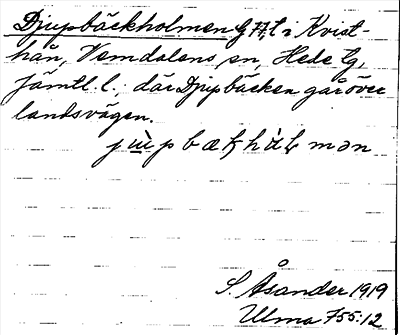 Djupbäckholmen G 77, l i Kvist-
hån, Vemdalens sn, Hede tg,
Jämtl. l., där Djupbäcken går över
landsvägen.
S. Åsander 1919
Ulma 755:12